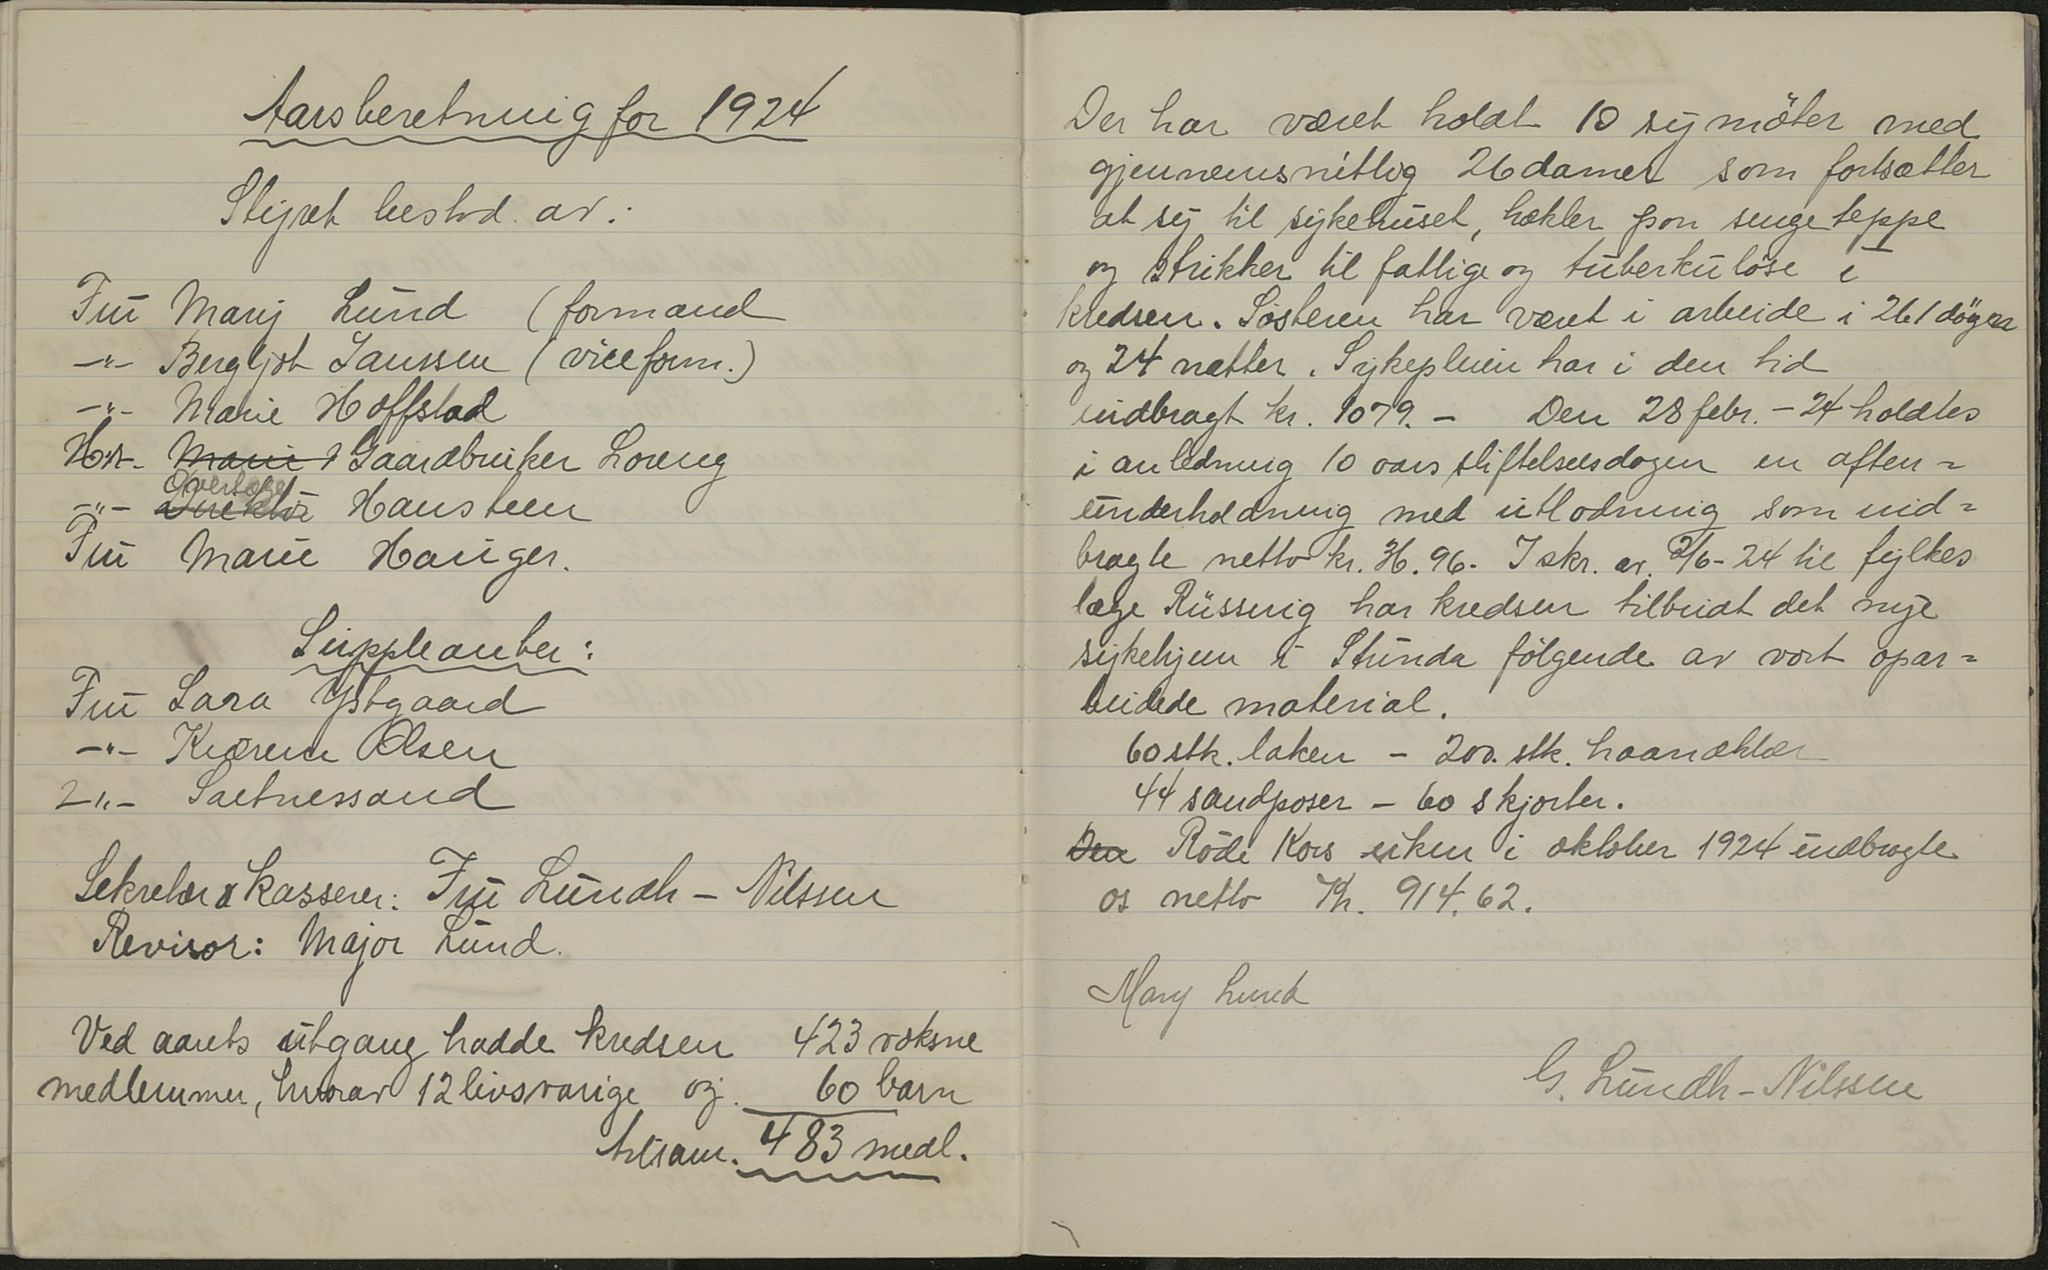 Aarsberetning for 1924
Styret bestod av:
Fru Mary Lund (formand
-"- Bergljot Janssen (viceform.)
-"- Marie Hoffstad
Hr. Marie Gaardbruker Loreng
Overlæge
-"- Direktör Hansteen
Fru Marie Hauger.
Suppleanter:
Fru Lara Ystgaard
-"- Kvarem Olsen
-"- Saetnessand
Sekretær & Kasserer: Fru Lundh - Nilssen
Revisor: Major Lund.
Ved aarets utgang hadde kredsen 423 voksne
medlemmer, hvorav 12 livsvarige og 60 barn
tilsam. 483 medl.
Der har været holdt 10 symöter med
gjennemsnitlig 26 damer som fortsætter
at sy til sykehuset, hækler paa sengeteppe
og strikker til fattige og tuberkulöse i
kredsen. Sösteren har været i arbeide i 261 dögn
og 24 nætter. Sykepleien har i den tid
indbragt kr. 1079.- Den 28 febr. - 24 holdtes
i anledning 10 aars stiftelsesdagen en aften=
underholdning med utlodning som ind=
bragte netto kr. 36.96. I skr. av 2/6-24 til fylkes
læge Rüssing har kredsen tilbudt det nye
sykehjem i Stunda fölgende av vort opar=
beidede material.
60 stk. laken - 200 stk. haandklær
44 sandposer - 60 skjorter.
Den Röde Kors uken i oktober 1924 indbragte
os netto Kr. 914.62.
Mary Lund
G. Lundh-Nilssen